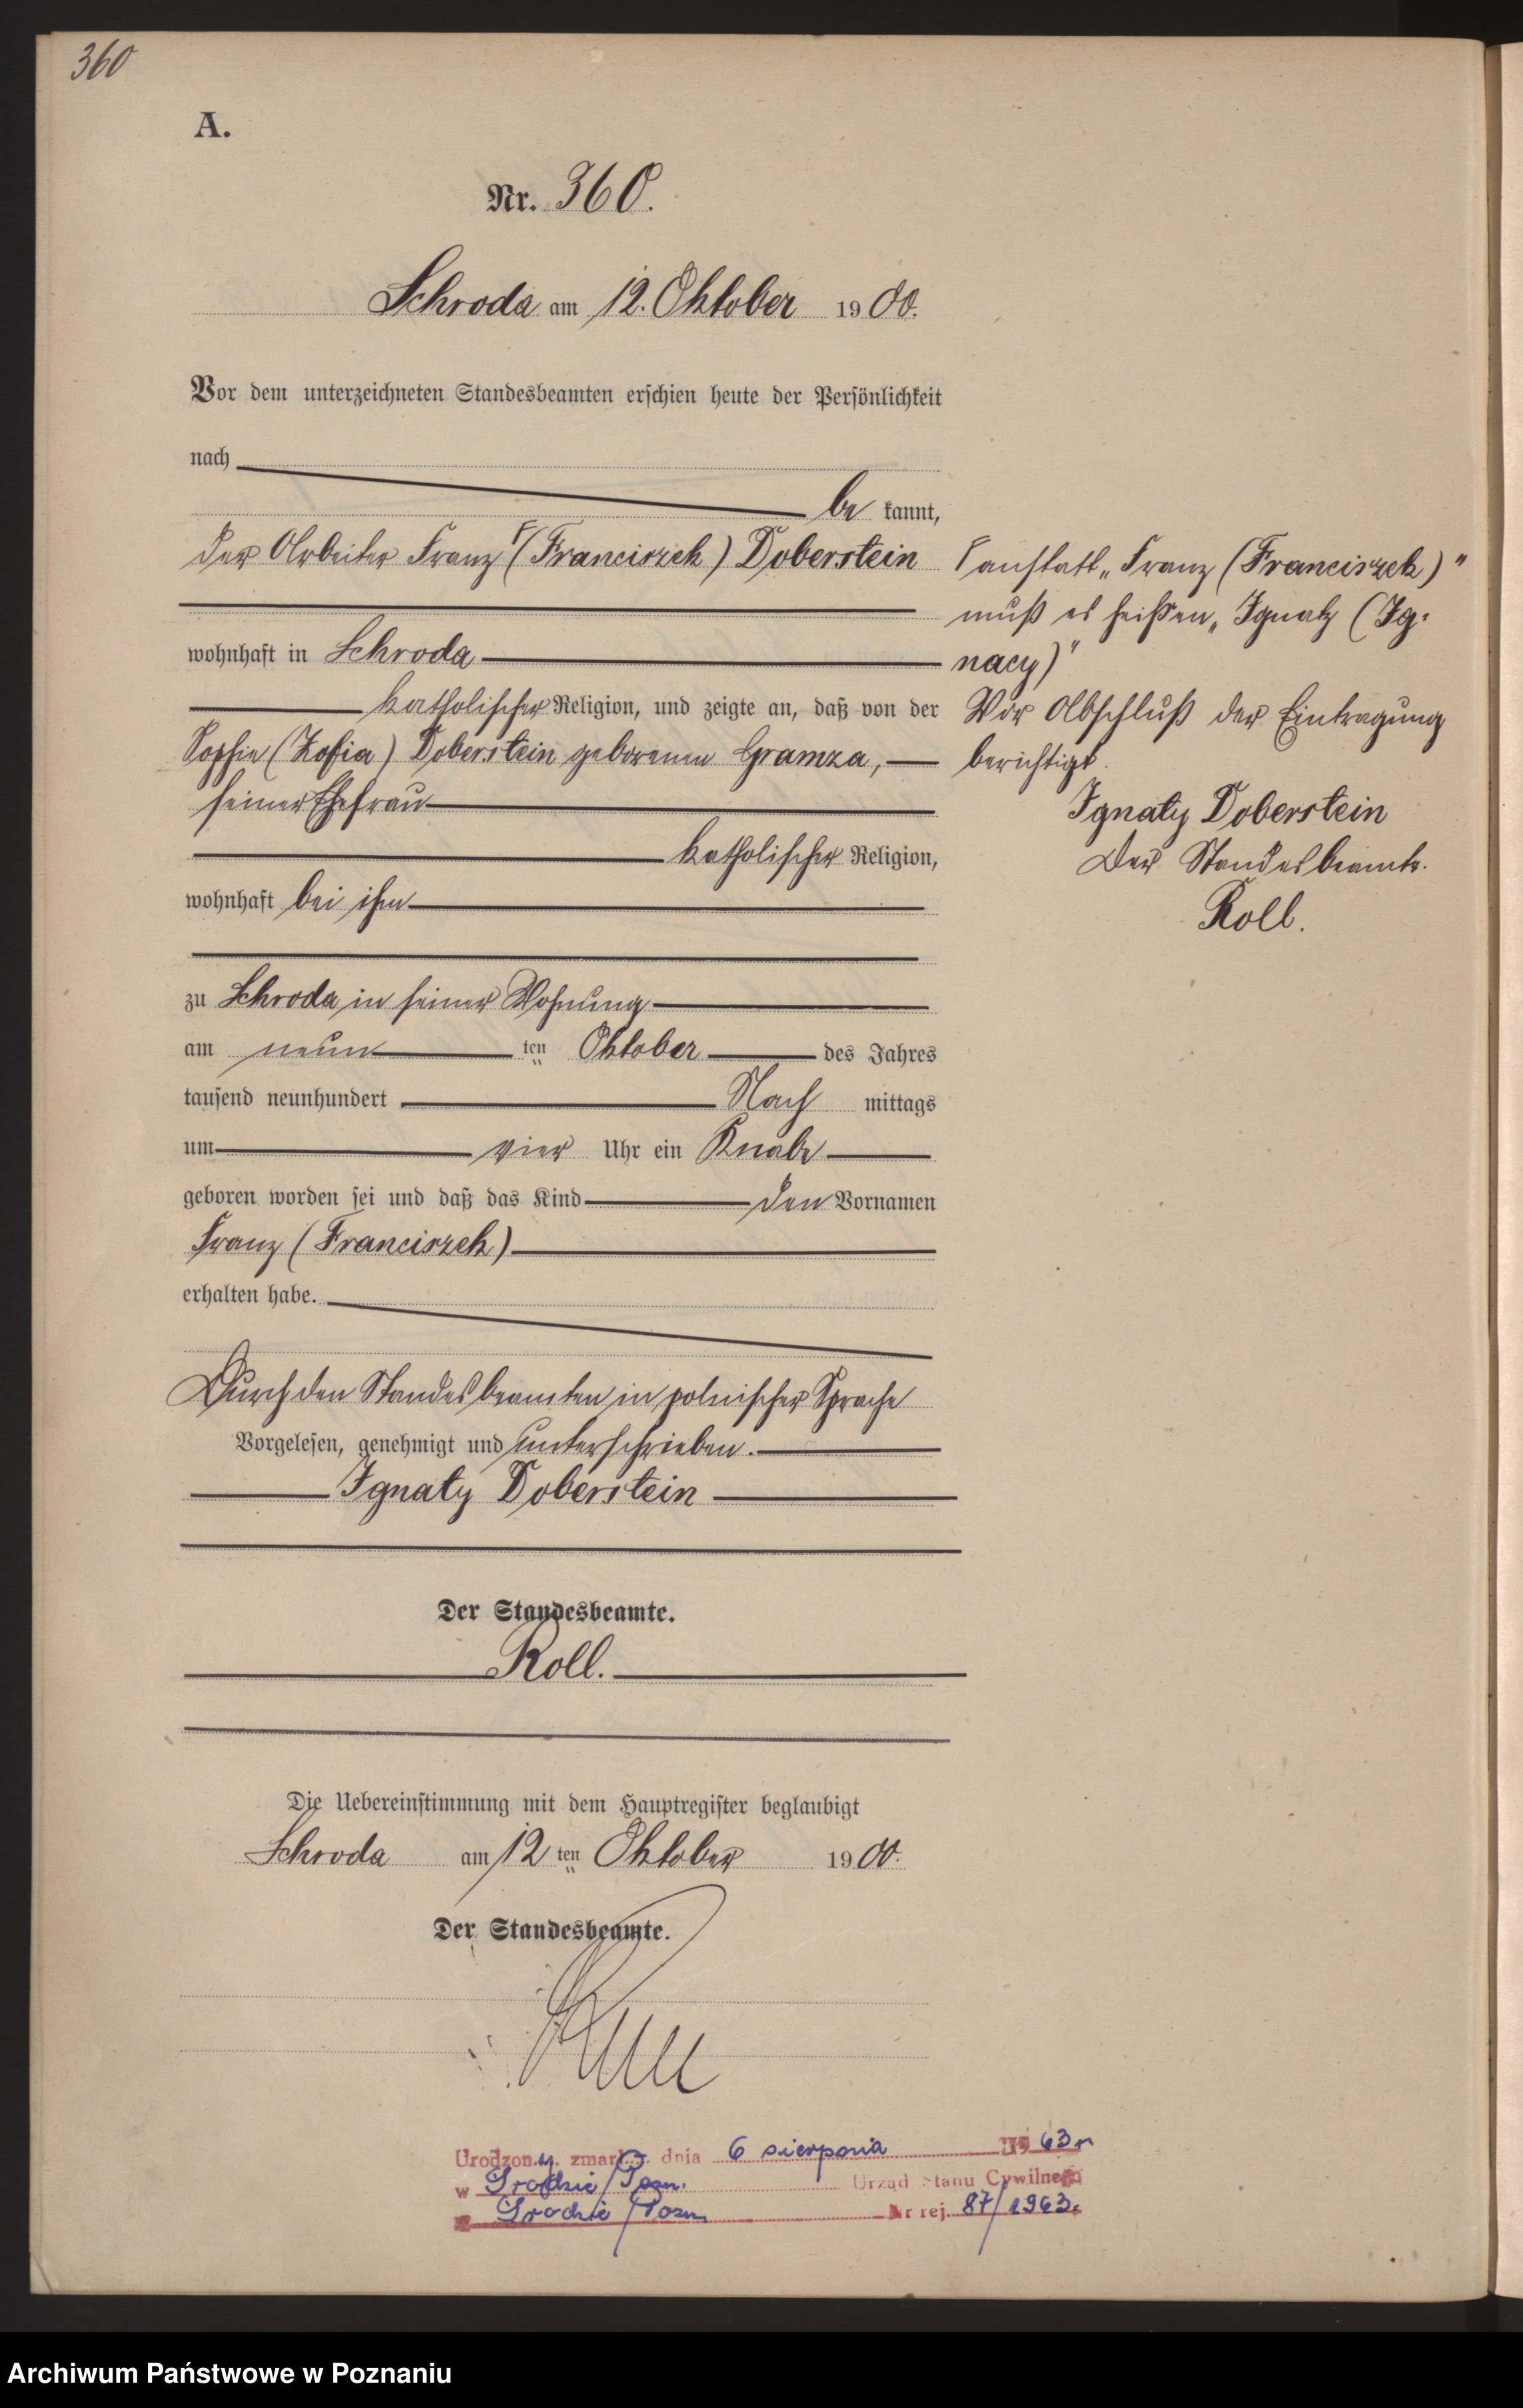 360
A.
Nr. 360.
Schroda am 12. Oktober 1900.
Vor dem unterzeichneten Standesbeamten erschien heute der Persönlichkeit
nach
be kannt,
der Arbeiter Franz ┌ (Franciszek) Doberstein
wohnhaft in Schroda
katholischer Religion, und zeigte an, daß von der
Sophie (Zofia) Doberstein geborenen Gramza,
seiner Ehefrau
katholischer Religion,
wohnhaft bei ihm
zu Schroda in seiner Wohnung
am neun ten Oktober des Jahres
tausend neunhundert Nach mittags
um vier Uhr ein Knabe
geboren worden sei und daß das Kind den Vornamen
Franz (Franciszek)
erhalten habe.
Durch den Standesbeamten in polnischer Sprache
Vorgelesen, genehmigt und unterschrieben.
Ignaty Doberstein
Der Standesbeamte.
Roll.
Die Uebereinstimmung mit dem Hauptregister beglaubigt
Schroda am 12 ten Oktober 1900.
Der Standesbeamte.
┌ anstatt „Franz (Franciszek)"
muß es heißen „Ignatz (Ig-
nacy)"
Vor Abschluß der Eintragung
berichtigt.
Ignaty Doberstein
Der Standesbeamte.
Roll.
Urodzony zmarł dnia 6 sierpnia 1963 r
w Środzie/Pozn. Urząd Stanu Cywilnego
Środzie/Pozn Nr rej. 87/1963.
Archiwum Państwowe w Poznaniu